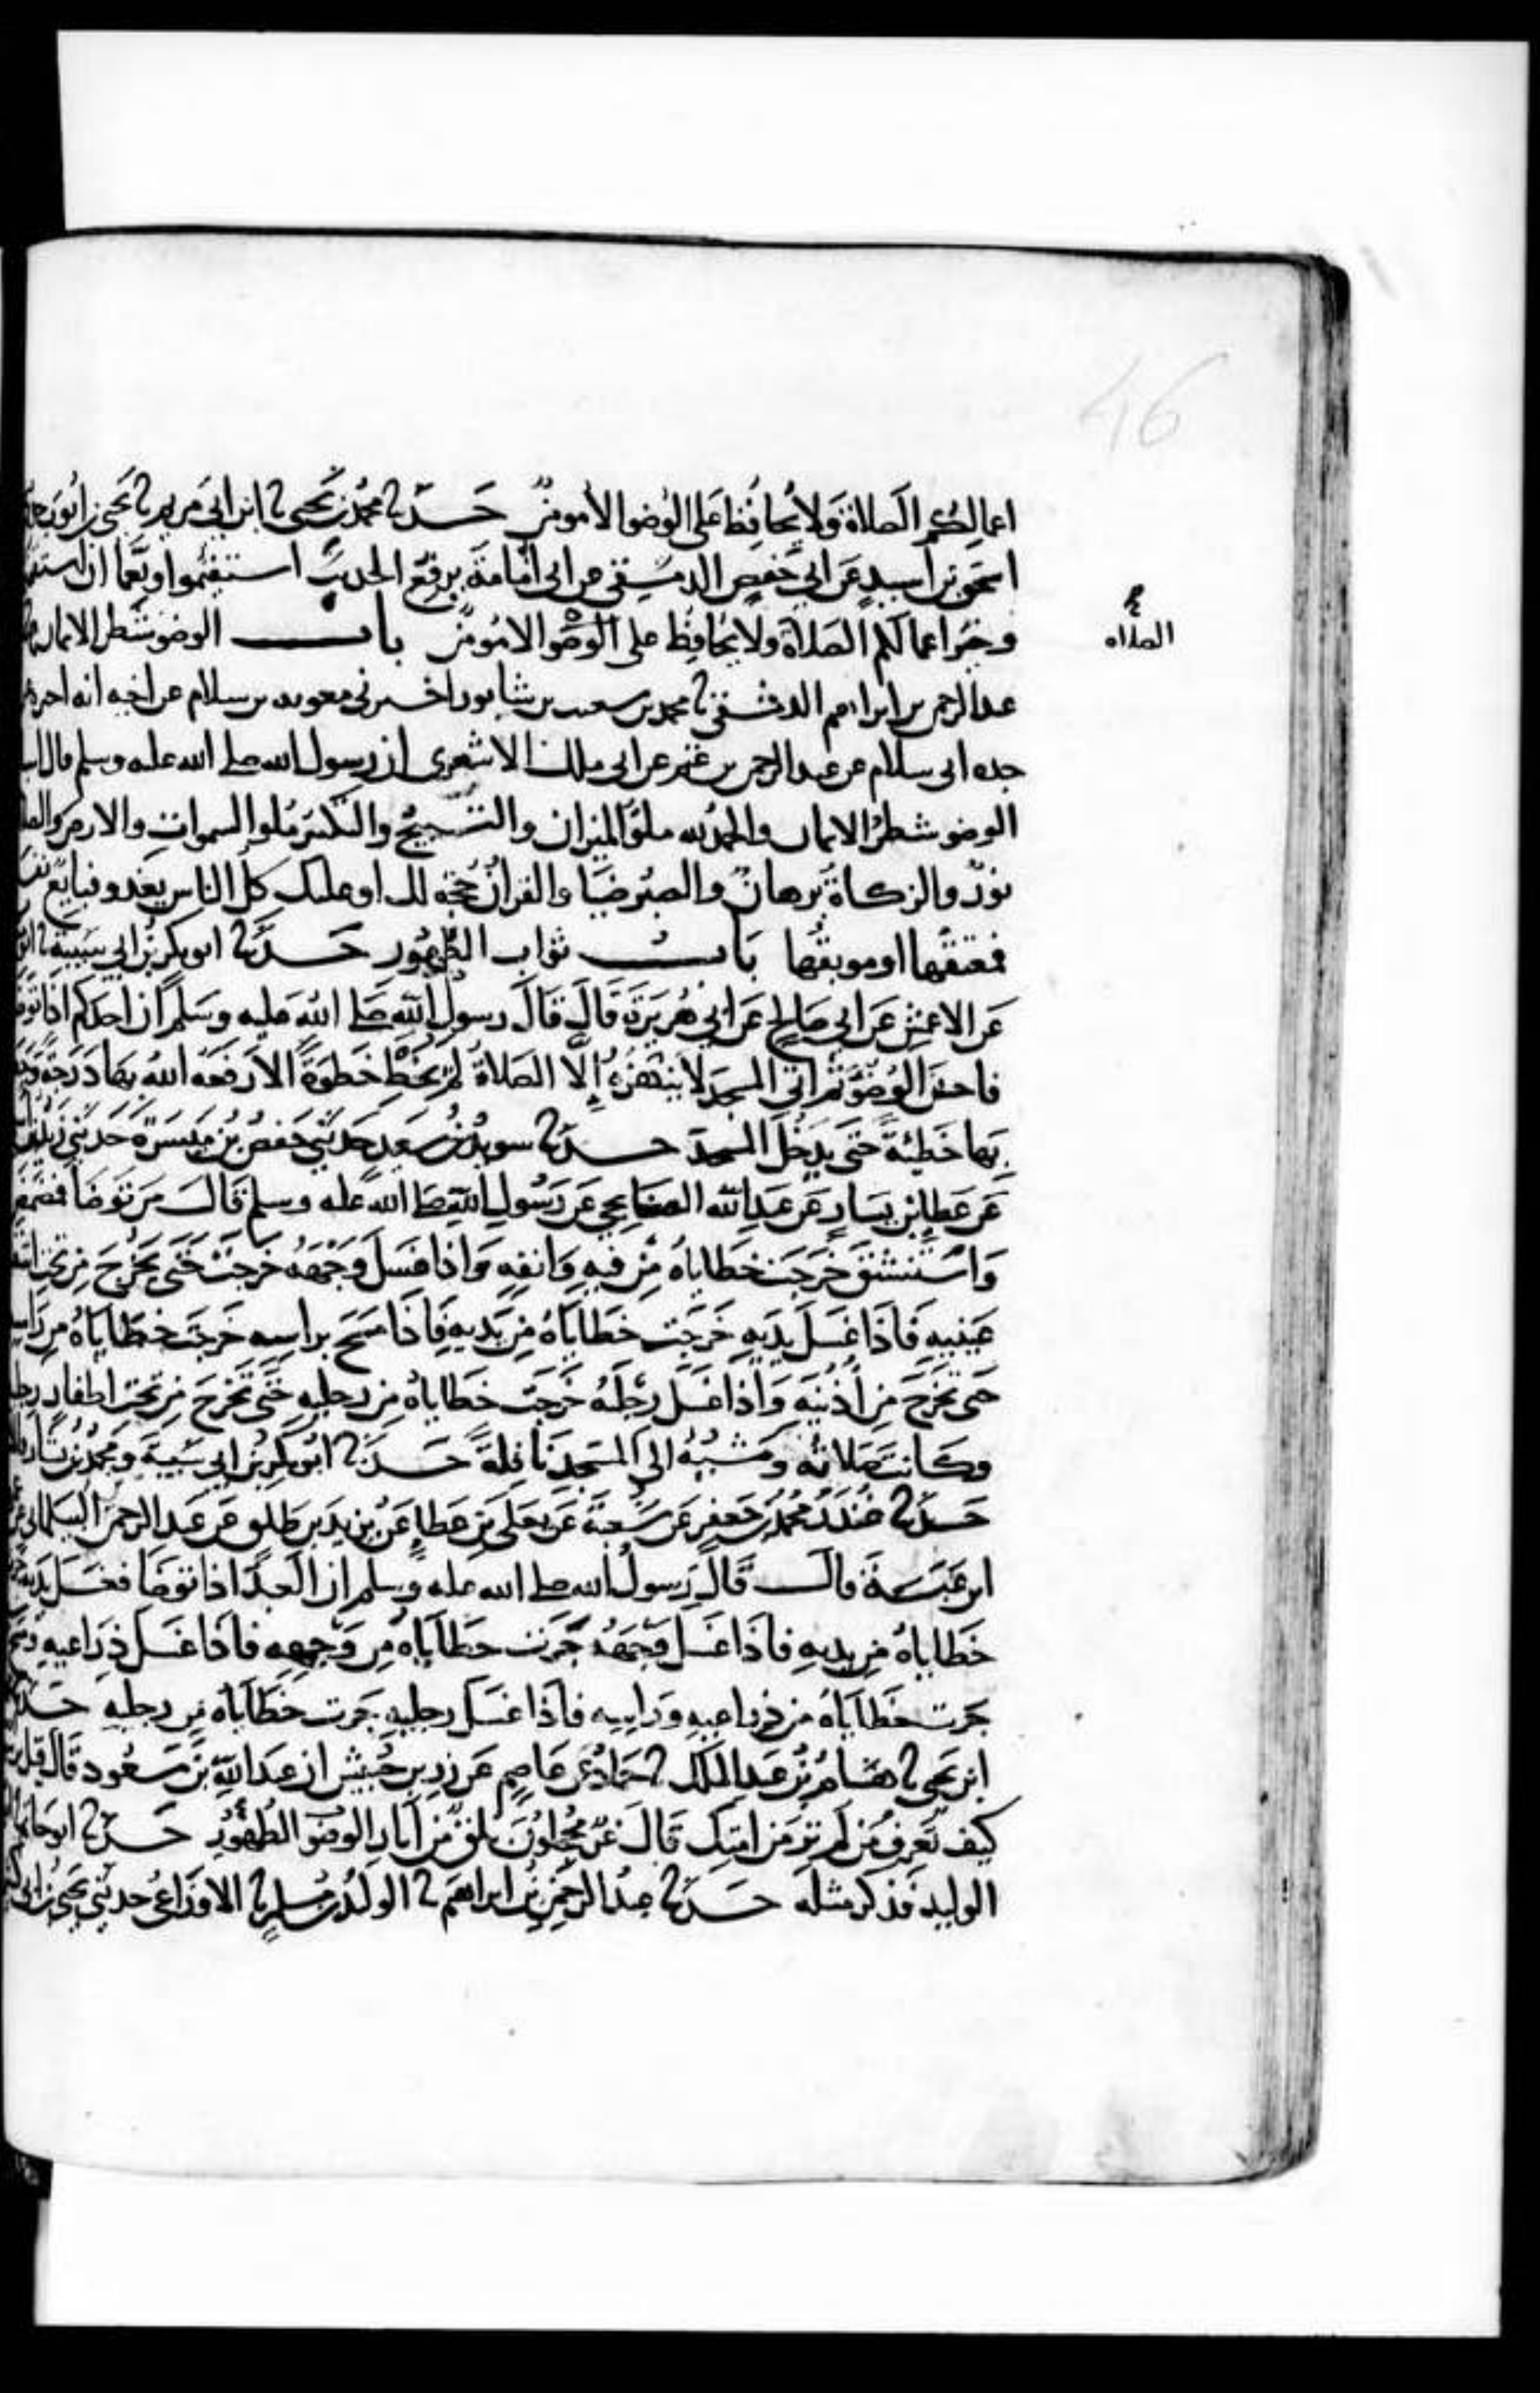 46
اعمالكم الصلاة ولا يحافظ على الوضو الا مومن حدثنا محمد بن يحيى ثنا ابن ابي مريم ثنا يحيى بن ايوب
اسحق بن اسيد عن ابي حفص الدمشقي عن ابي امامة يرفع الحديث استقيموا ونعما ان
وخير اعمالكم الصلاة ولا يحافظ على الوضو الا مومن باب الوضو شطر الايمان
الصلاه
عبد الرحمن بن ابراهيم الدمشقي ثنا محمد بن سعيد بن شابور اخبرني معويه بن سلام عن اخيه انه اخبره
جده ابي سلام عن عبد الرحمن بن غنم عن ابي ملك الاشعري ان رسول الله صلى الله عليه وسلم قال
الوضو شطر الايمان والحمد لله ملو الميزان والتسبيح والتكبير ملو السموات والارض
نور والزكاة برهان والصبر ضيا والقران حجة لك او عليك كل الناس يغدو فبايع
فمعتقها او موبقها باب ثواب الطهور حدثنا ابو بكر بن ابي شيبة ثنا
عن الاعمش عن ابي صالح عن ابي هريرة قال قال رسول الله صلى الله عليه وسلم ان احدكم اذا
فاحسن الوضو ثم اتى المسجد لا ينهزه الا الصلاة لم يخط خطوة الا رفعه الله بها درجة
بها خطيئة حتى يدخل المسجد حدثنا سويد بن سعيد حدثني حفص بن ميسرة حدثني
عن عطا بن يسار عن عبد الله الصنابحي عن رسول الله صلى الله عليه وسلم قال من توضا
واستنشق خرجت خطاياه من فيه وانفه واذا غسل وجهه خرجت حتى يخرج من تحت
عينيه فاذا غسل يديه خرجت خطاياه من يديه فاذا مسح براسه خرجت خطاياه من
حتى تخرج من اذنيه واذا غسل رجله خرجت خطاياه من رجليه حتى تخرج من تحت اظفار
وكانت صلاته ومشيه الى المسجد نافلة حدثنا ابو بكر بن ابي شيبة ومحمد بن بشار
حدثنا غندر محمد بن جعفر عن شعبة عن يعلى بن عطا عن يزيد بن طلق عن عبد الرحمن البيلماني
ابن عبسة قال قال رسول الله صلى الله عليه وسلم ان العبد اذا توضا فغسل يديه
خطاياه من يديه فاذا غسل وجهه خرت خطاياه من وجهه فاذا غسل ذراعيه
خرت خطاياه من ذراعيه وراسه فاذا غسل رجليه خرت خطاياه من رجليه
ابن يحيى ثنا هشام بن عبد الملك ثنا حماد عن عاصم عن زر بن حبيش ان عبد الله بن مسعود قال
كيف تعرف من لم تر من امتك قال غر محجلون بلق من اثار الوضو الطهور حدثنا ابو حاتم
الوليد فذكر مثله حدثنا عبد الرحمن بن ابراهيم ثنا الوليد بن مسلم ثنا الاوزاعي حدثني يحيى بن ابي